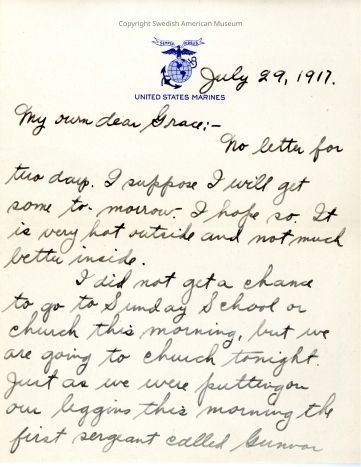 Copyright Swedish American Museum
SEMPER FIDELIS
July 29, 1917.
UNITED STATES MARINES
My own dear Grace:-
No letter for
two day. I suppose I will get
some to-morrow. I hope so. It
is very hot outside and not much
better inside.
I did not get a chance
to go to Sunday School or
church this morning, but we
are going to church tonight.
Just as we were putting on
our leggins this morning the
first sergeant called Gunvor